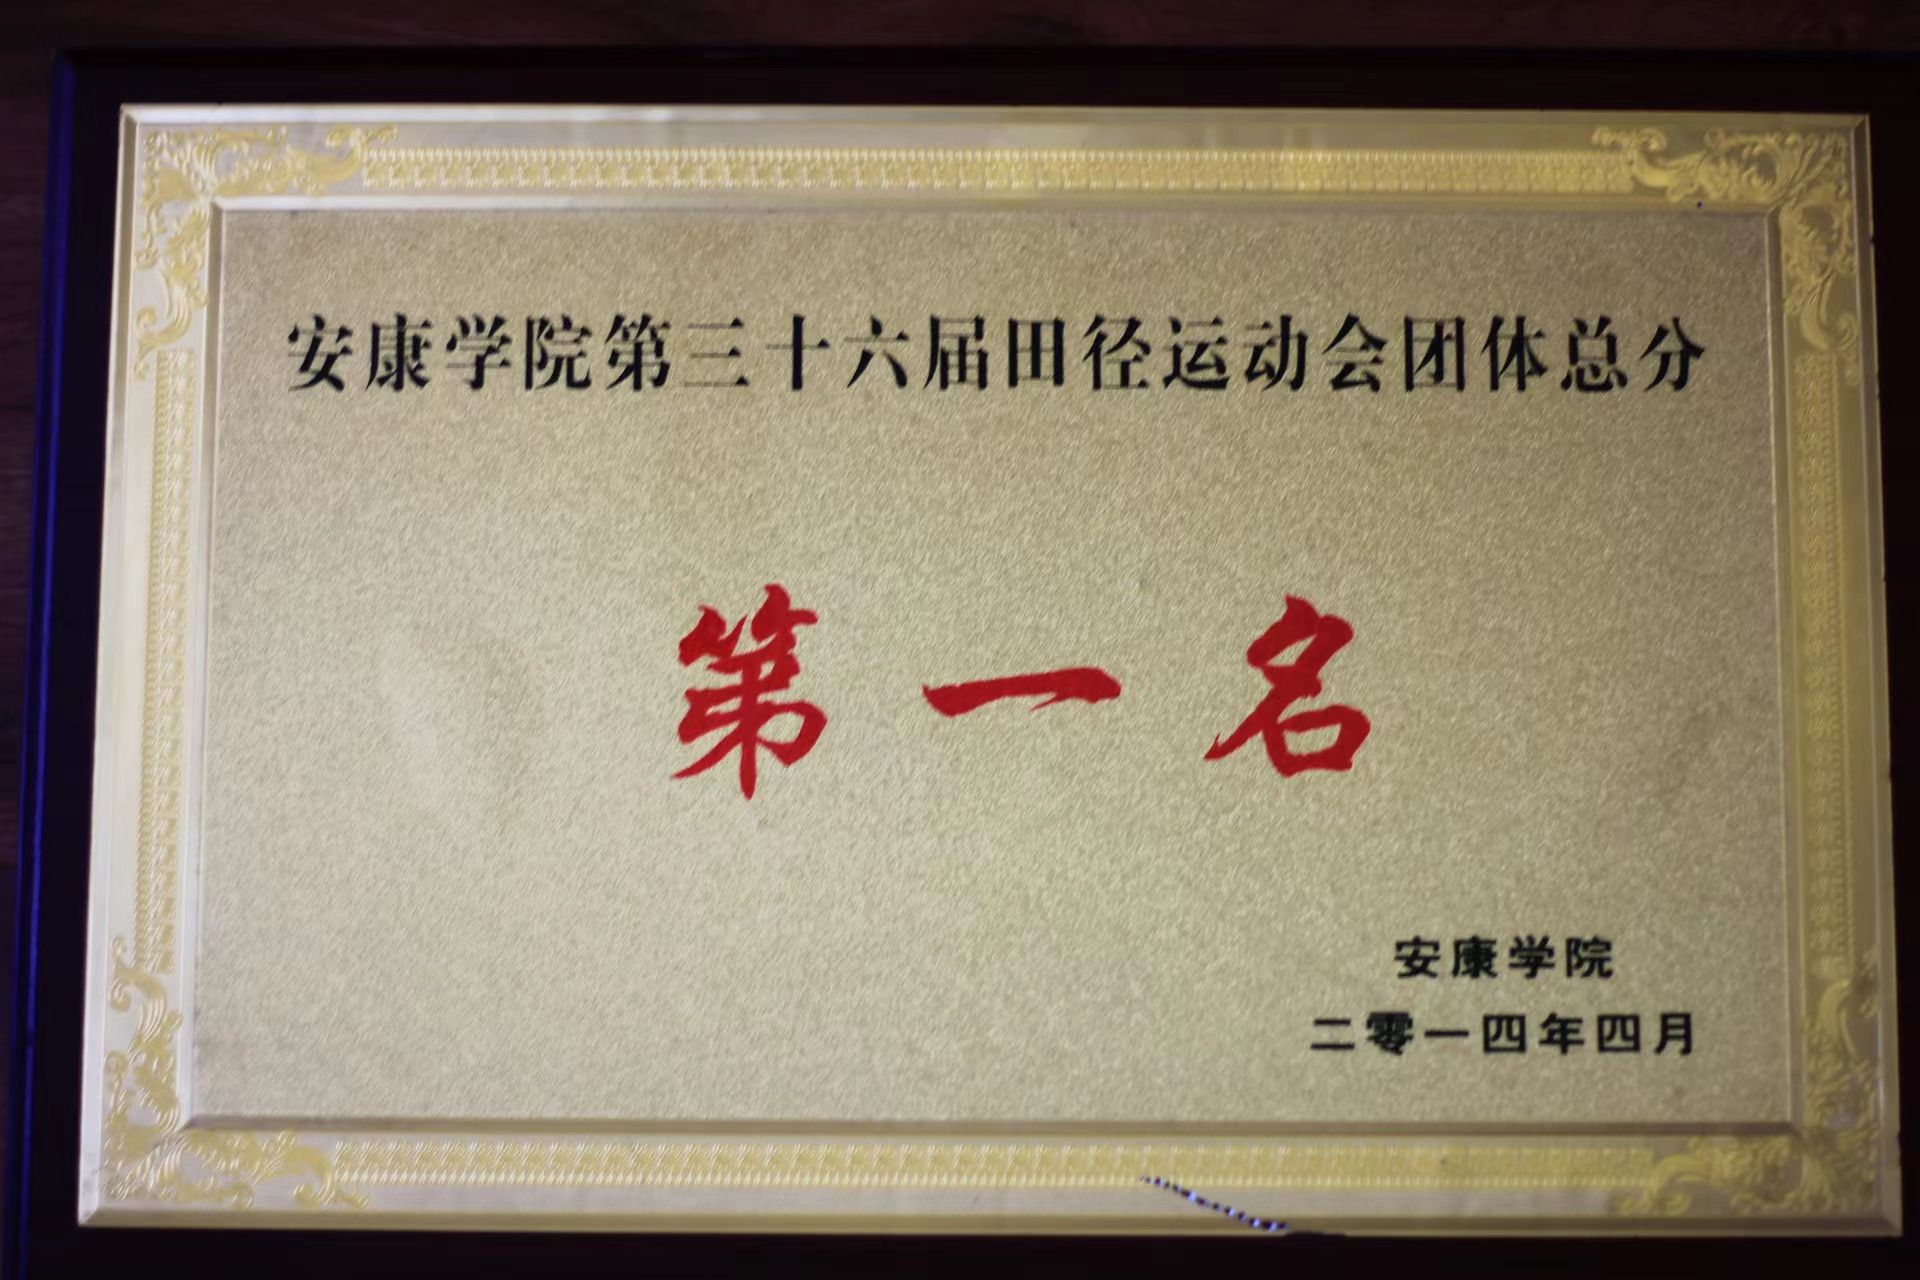 安康学院第三十六届田径运动会团体总分
第一名
安康学院
二零一四年四月